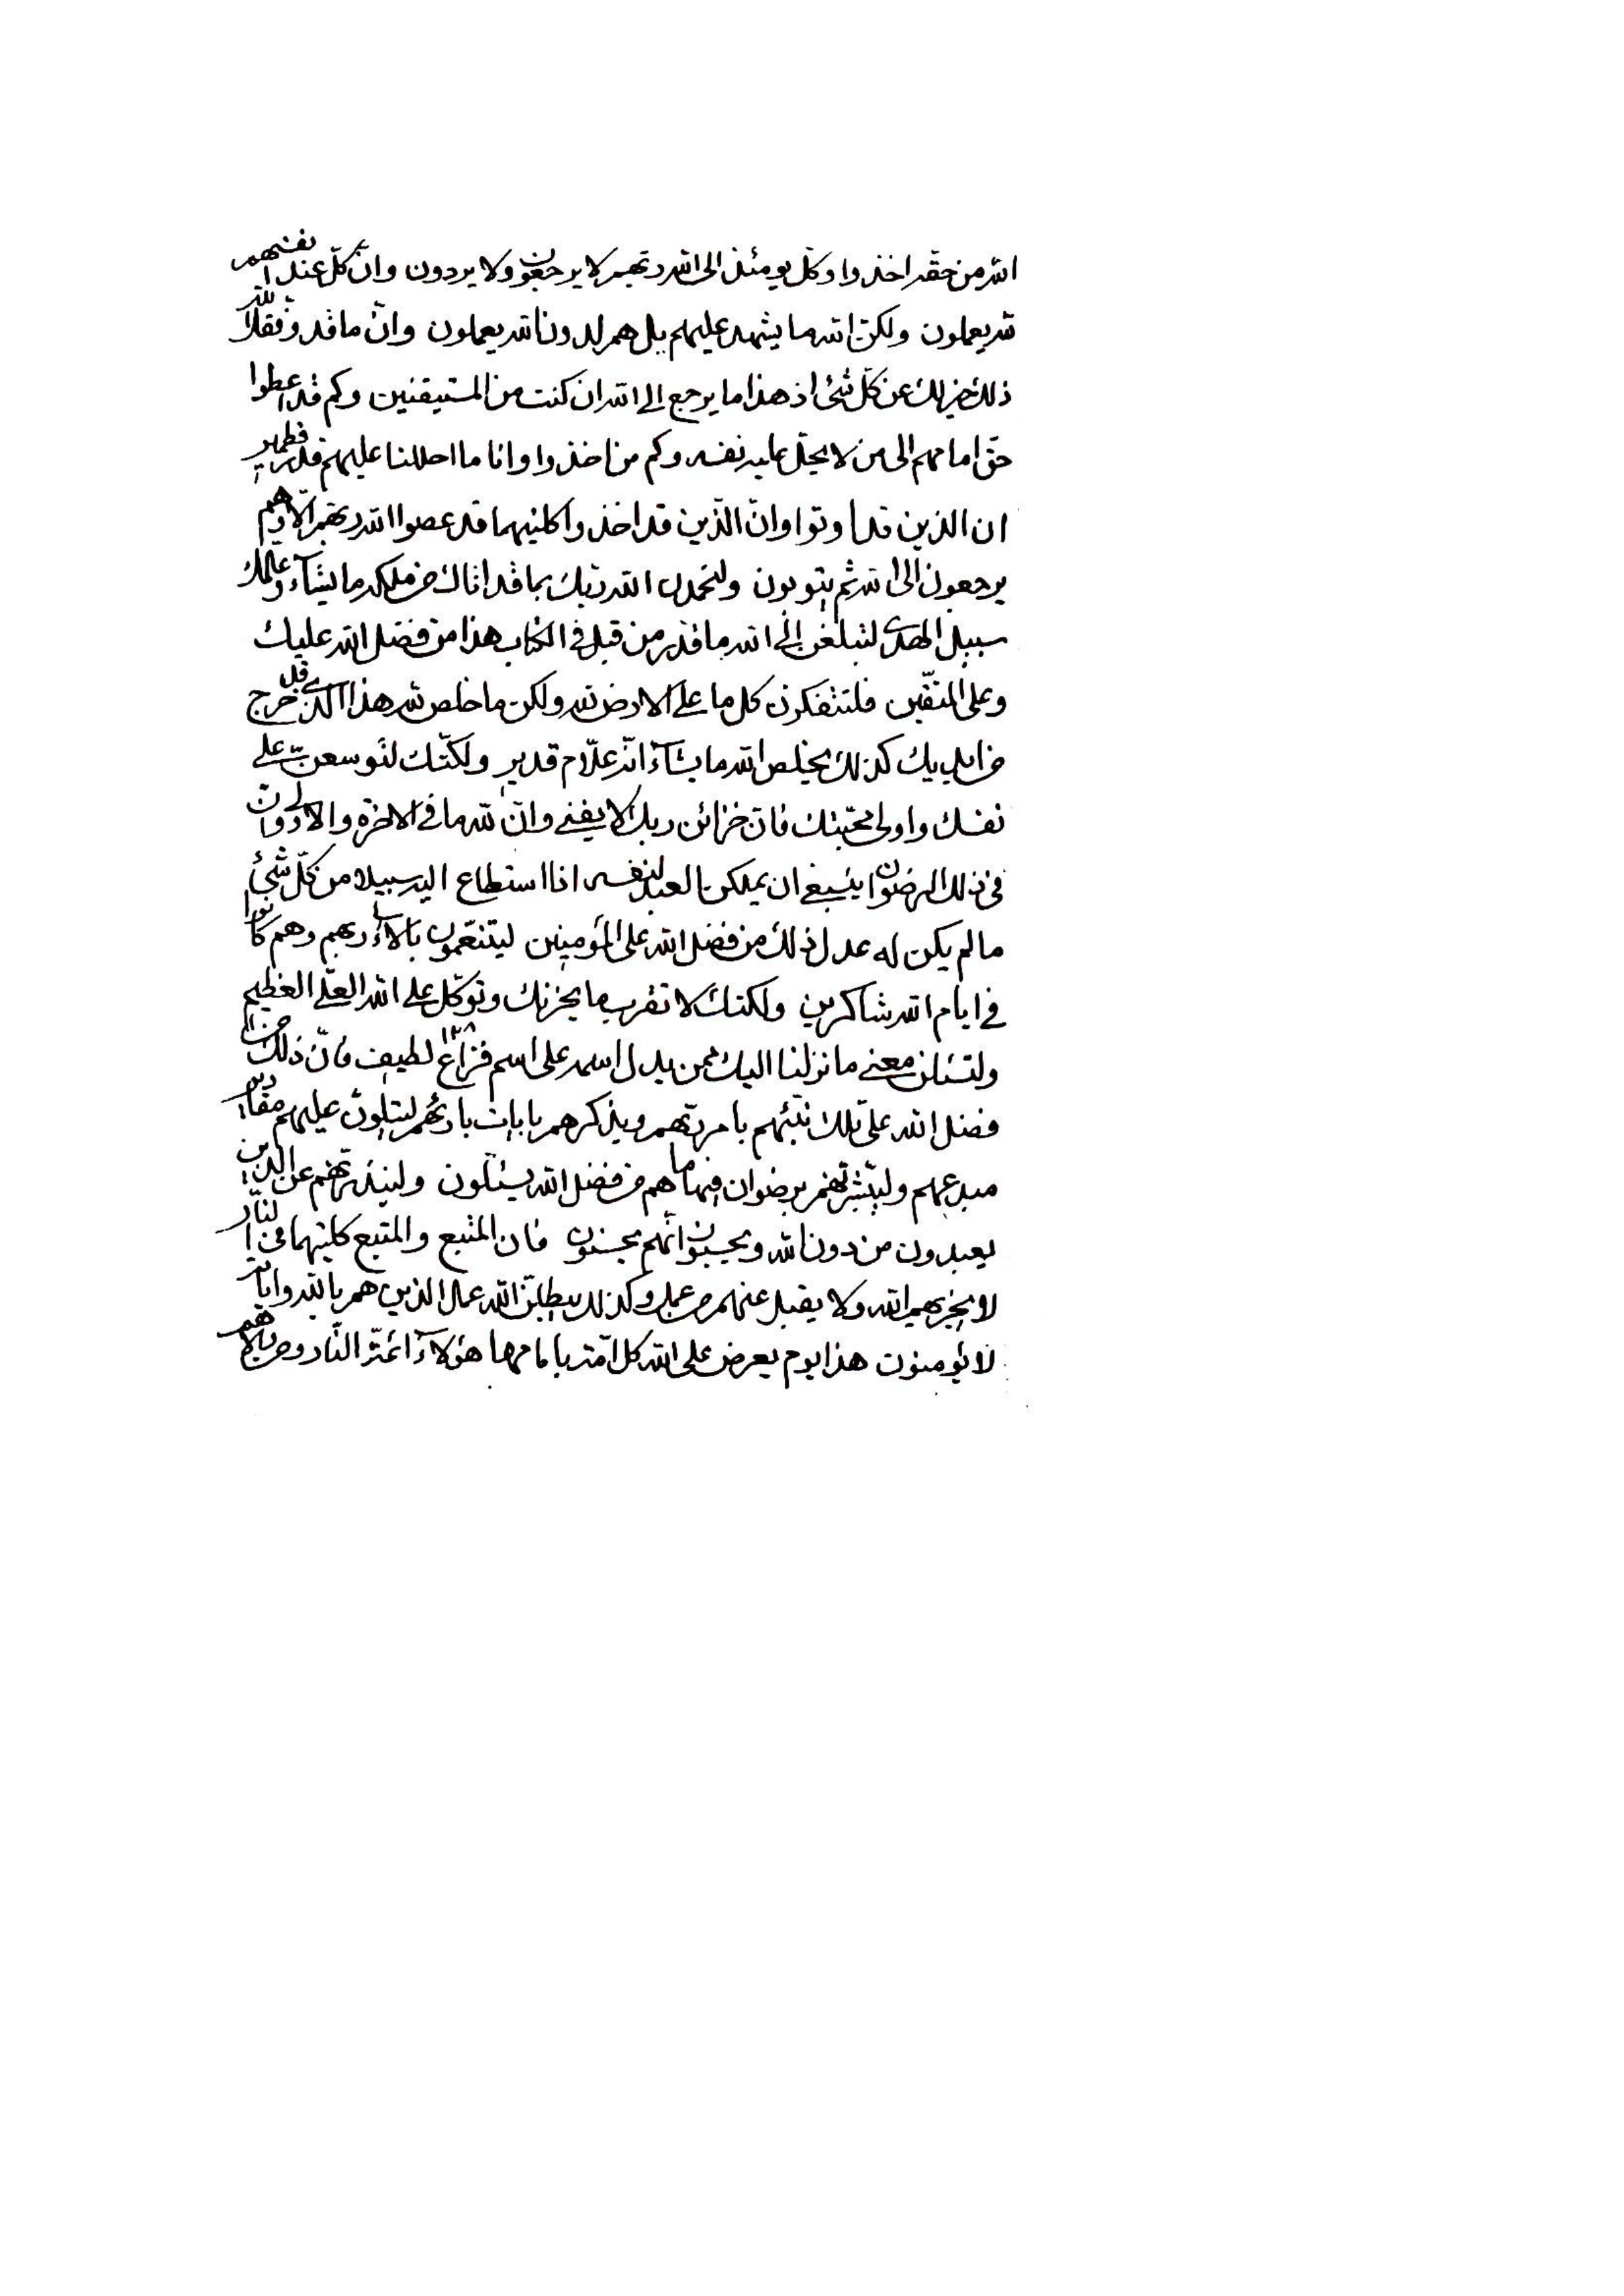 الله من حقه اخذوا وكل يومئذ الى الله ربهم لا يرجعون ولا يردون وان كل عند انفسهم
لله يعملون ولكن الله ما يشهد عليهم بل هم لدون الله يعملون وان ما قد وفقك الله
ذلك خير لك عن كل شئ اذ هذا ما يرجع الى الله ان كنت من المستيقنين وكم قد اعطوا
حق امامهم الى من لا يحل عليه نفسه وكم من اخذوا وانا ما احللنا عليهم قدر قطمير
ان الذين قد اوتوا وان الذين قد اخذوا كليهما قد عصوا الله ربهم الا وهم
يرجعون الى الله ثم يتوبون ولتحمدن الله ربك بما قد اتاك من ملكه ما يشآء وعلمك
سبيل الهدى لتبلغن الى الله ما قدر من قبل في الكتاب هذا من فضل الله عليك
وعلى المتقين فلتتفكرن كل ما على الارض لله ولكن ما خلص لله هذا الذي قد خرج
من ايديك كذلك يخلص الله ما يشآء انه علام قدير ولكنك لتوسعن على
نفسك واولى محبتك فان خزائن ربك لا يفنى وان لله ما في الاخرة والاولى وان
في ذلك الرضوان ينبغي ان يملكن العبد لنفسه اذا استطاع اليه سبيلا من كل شئ
ما لم يكن له عدل ذلك من فضل الله على المؤمنين ليتنعمون بالاء ربهم وهم كانوا
في ايام الله شاكرين ولكنك لا تقرب ما يحزنك وتوكل على الله العلى العظيم
ولتسئلن معنى ما نزلنا اليك ممن يدل اسمه على اسم فزاع ١٣٨ لطيف فان ذلك من
فضل الله على تلك نبئهم بامر ربهم ويذكرهم بايات بارئهم ليتلون عليهم مقادير
مبدعهم وليبشرنهم برضوان فيها ما هم من فضل الله يسئلون ولينذرنهم عن الذين
يعبدون من دون الله ويحسبون انهم يحسنون فان المتبع والمتبع كليهما في النار
لا يجزيهم الله ولا يقبل عنهم من عمل وكذلك يبطلن الله عمال الذين هم بالله واياته
لا يؤمنون هذا يوم يعرض على الله كل امة بامامها هؤلآء ائمة النار